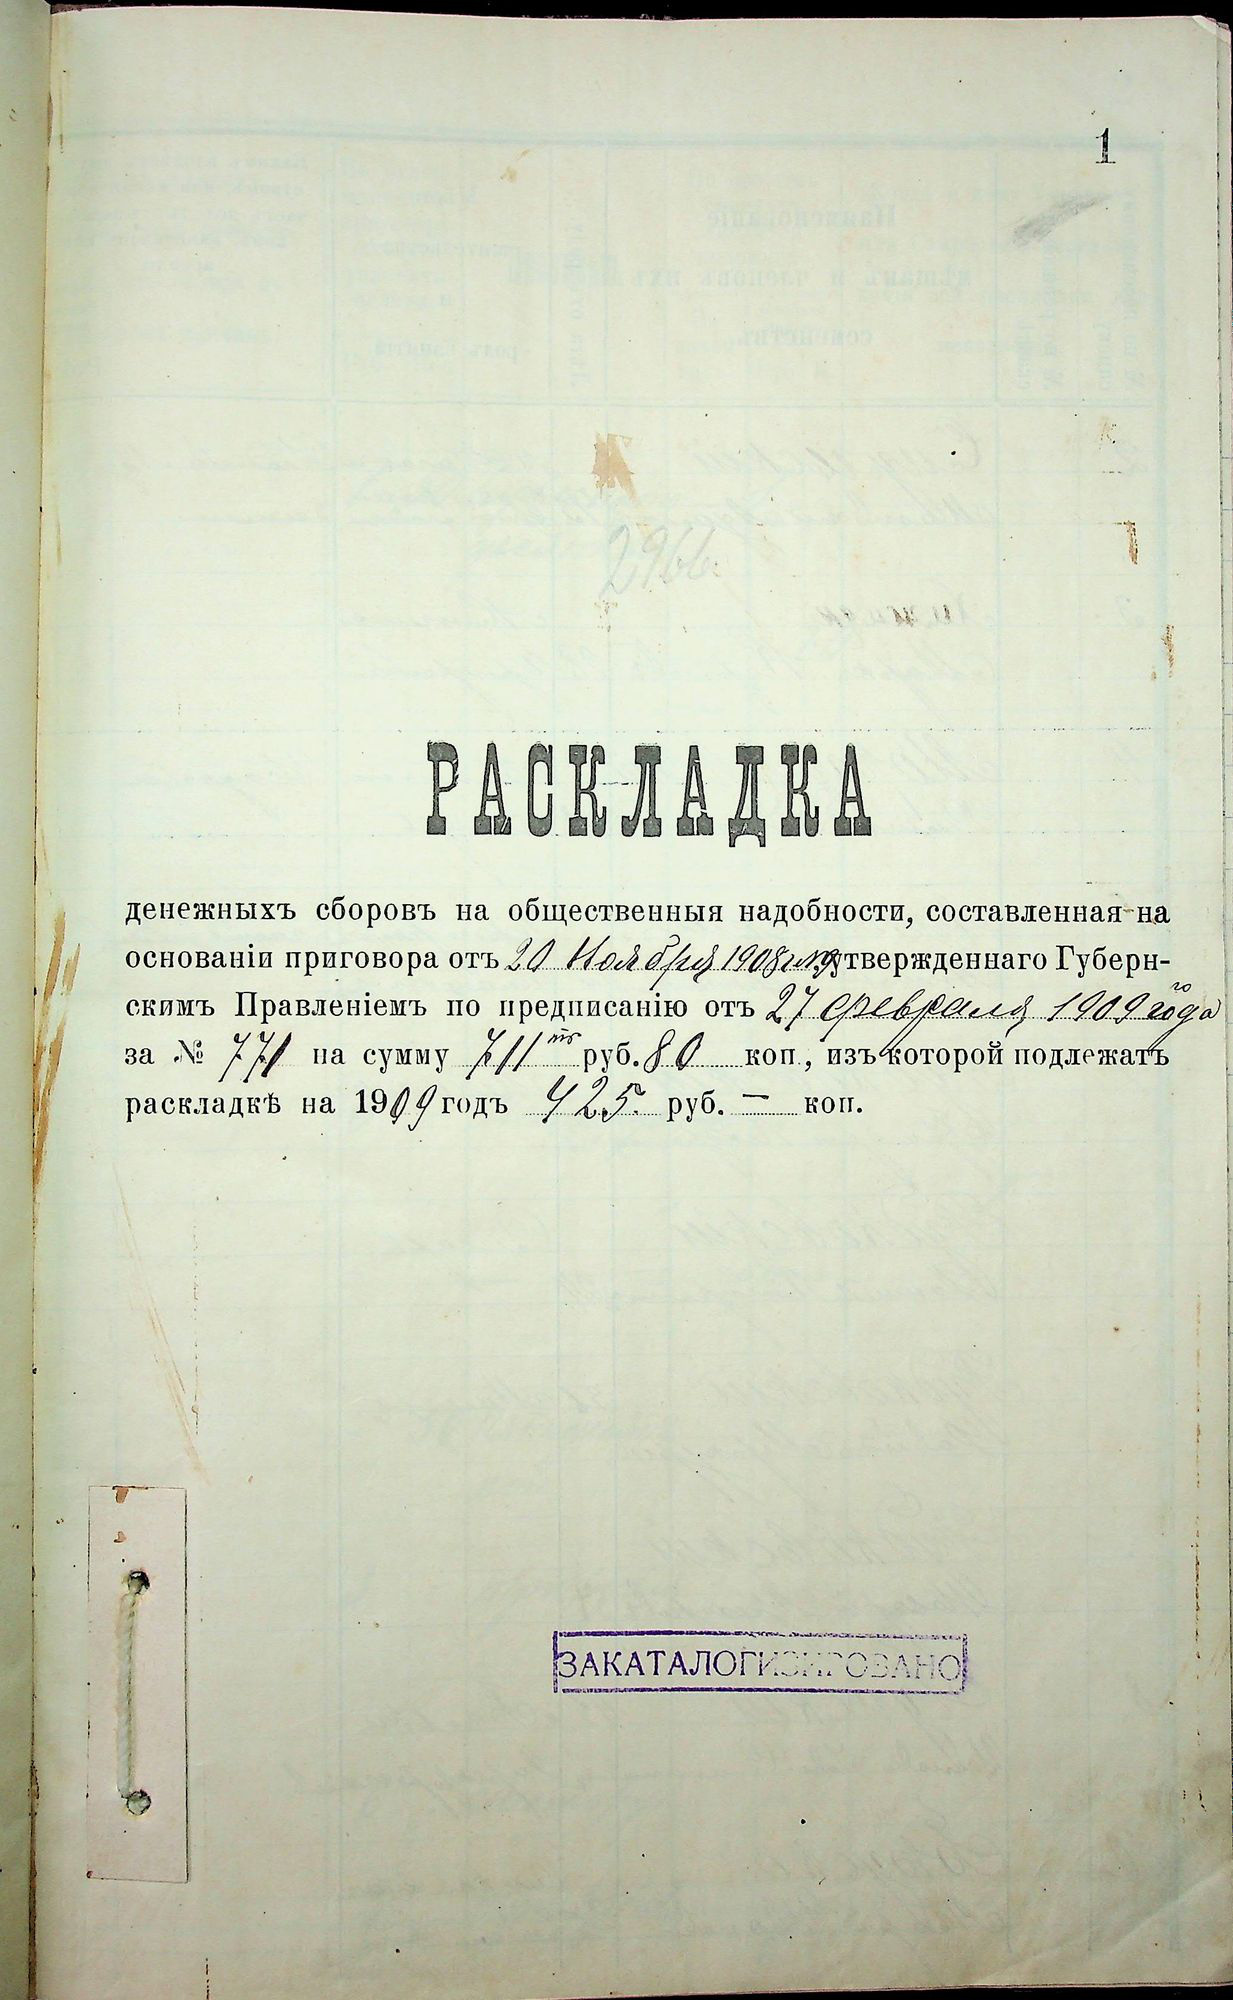 1
2966.
РАСКЛАДКА
денежныхъ сборовъ на общественныя надобности, составленная на
основаніи приговора отъ 20 Ноября 1908 утвержденнаго Губерн-
скимъ Правленіемъ по предписанію отъ 27 февраля 1909 года
за № 771 на сумму 711 руб. 80 коп., изъ которой подлежатъ
раскладкѣ на 1909 годъ 425. руб. — коп.
ЗАКАТАЛОГИЗИРОВАНО